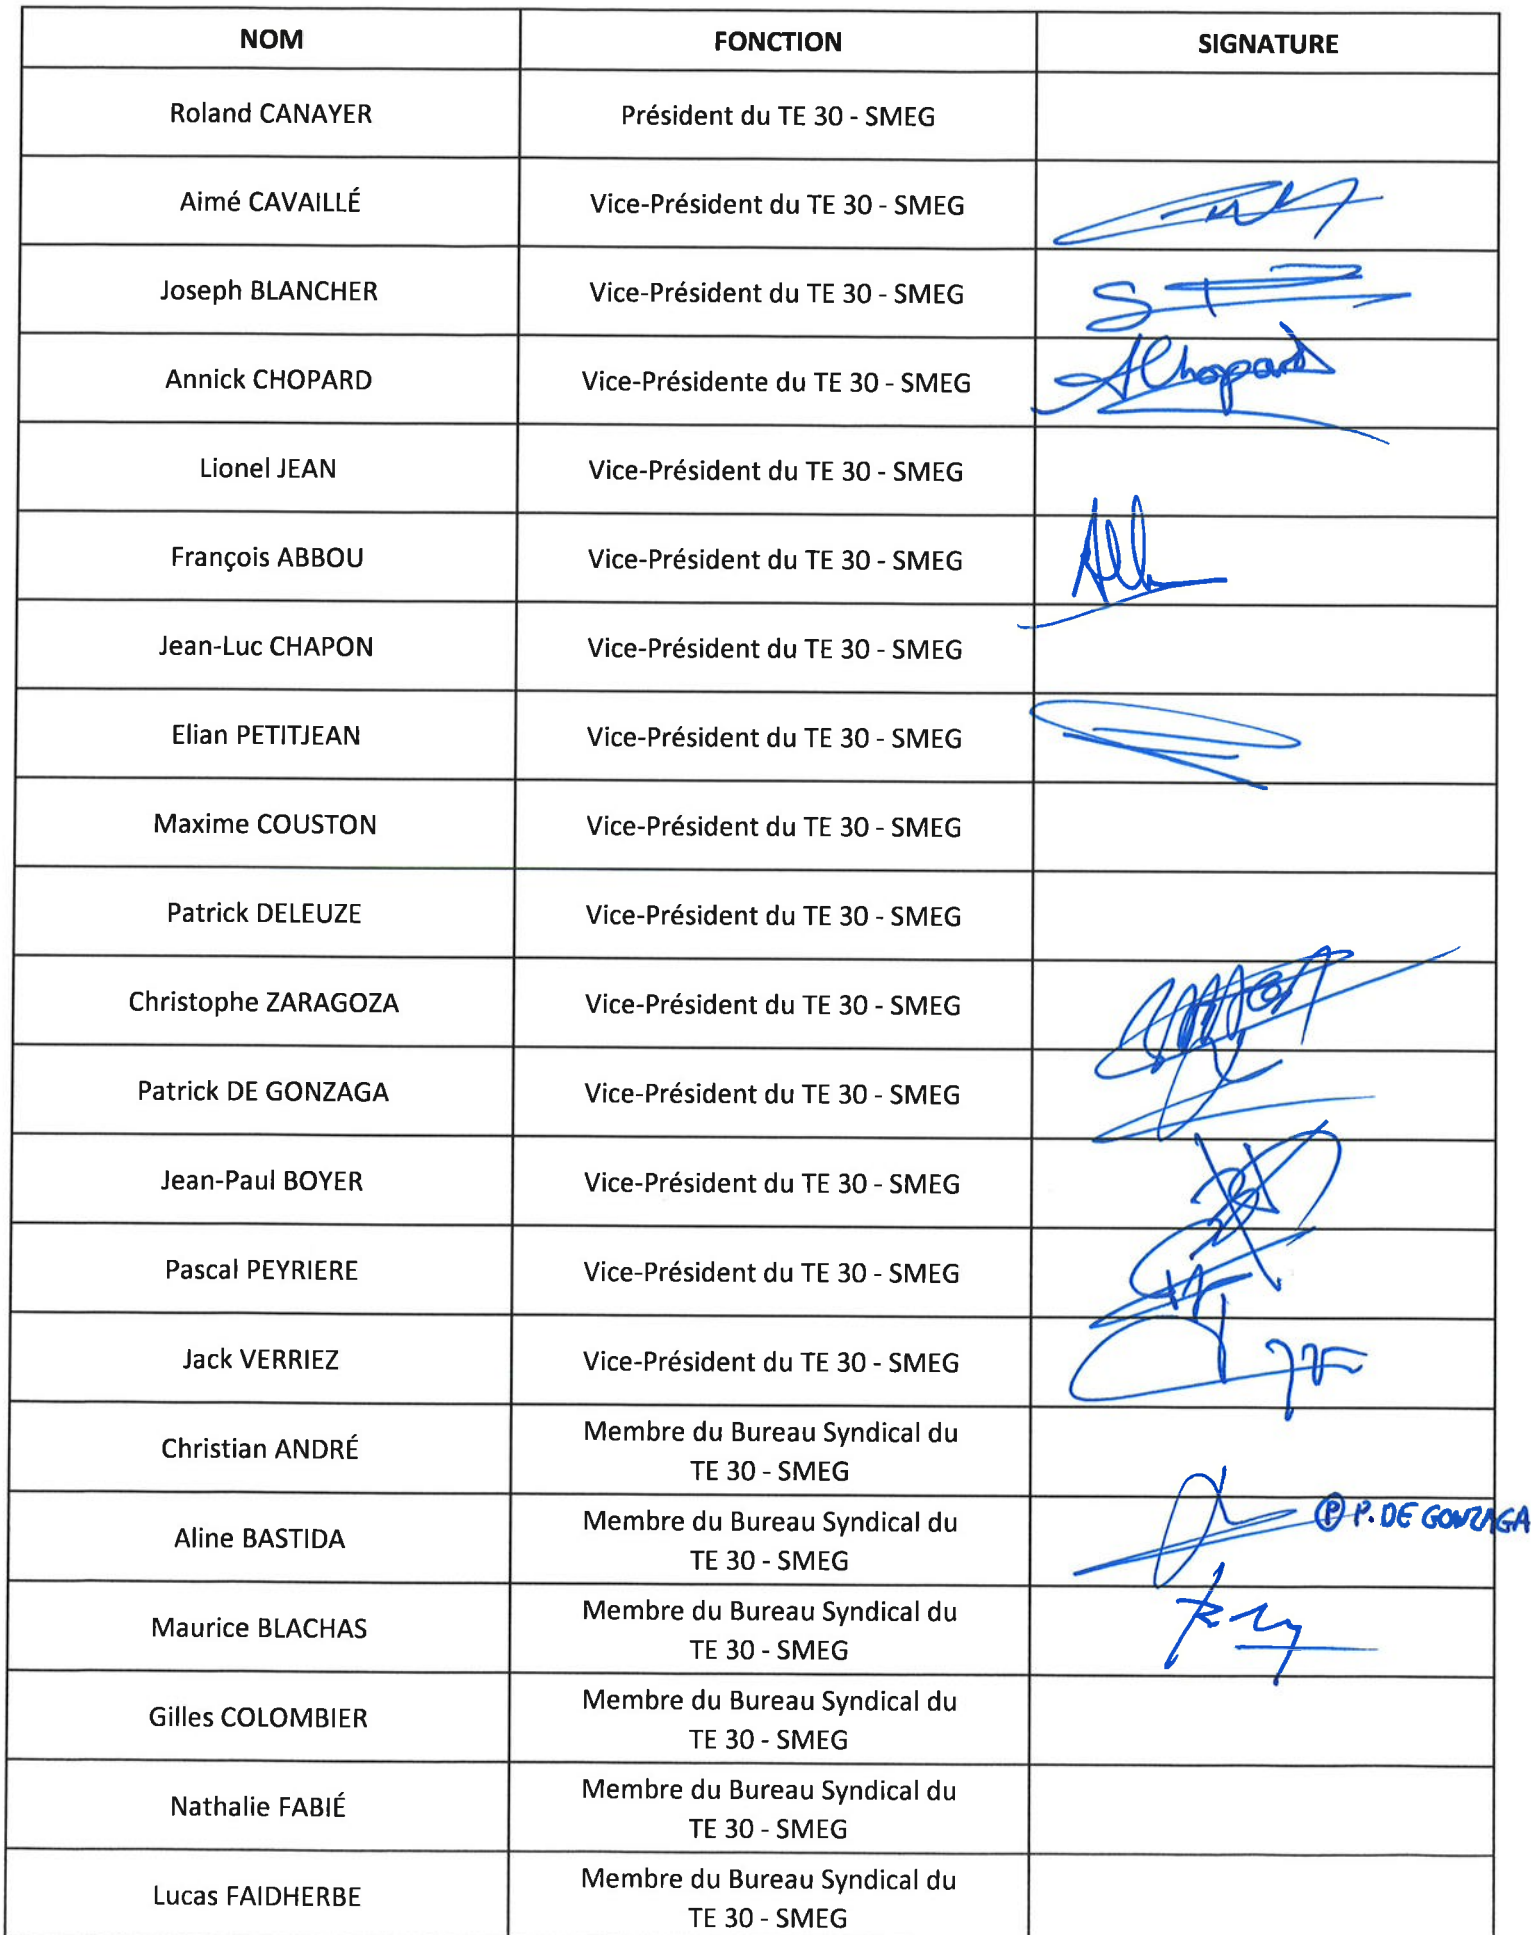 NOM FONCTION SIGNATURE
Roland CANAYER Président du TE 30 - SMEG
Aimé CAVAILLÉ Vice-Président du TE 30 - SMEG
Joseph BLANCHER Vice-Président du TE 30 - SMEG
Annick CHOPARD Vice-Présidente du TE 30 - SMEG AChopard
Lionel JEAN Vice-Président du TE 30 - SMEG
François ABBOU Vice-Président du TE 30 - SMEG
Jean-Luc CHAPON Vice-Président du TE 30 - SMEG
Elian PETITJEAN Vice-Président du TE 30 - SMEG
Maxime COUSTON Vice-Président du TE 30 - SMEG
Patrick DELEUZE Vice-Président du TE 30 - SMEG
Christophe ZARAGOZA Vice-Président du TE 30 - SMEG
Patrick DE GONZAGA Vice-Président du TE 30 - SMEG
Jean-Paul BOYER Vice-Président du TE 30 - SMEG
Pascal PEYRIERE Vice-Président du TE 30 - SMEG
Jack VERRIEZ Vice-Président du TE 30 - SMEG
Christian ANDRÉ Membre du Bureau Syndical du
TE 30 - SMEG
Aline BASTIDA Membre du Bureau Syndical du
TE 30 - SMEG
Ⓟ P. DE GONZAGA
Maurice BLACHAS Membre du Bureau Syndical du
TE 30 - SMEG
Gilles COLOMBIER Membre du Bureau Syndical du
TE 30 - SMEG
Nathalie FABIÉ Membre du Bureau Syndical du
TE 30 - SMEG
Lucas FAIDHERBE Membre du Bureau Syndical du
TE 30 - SMEG